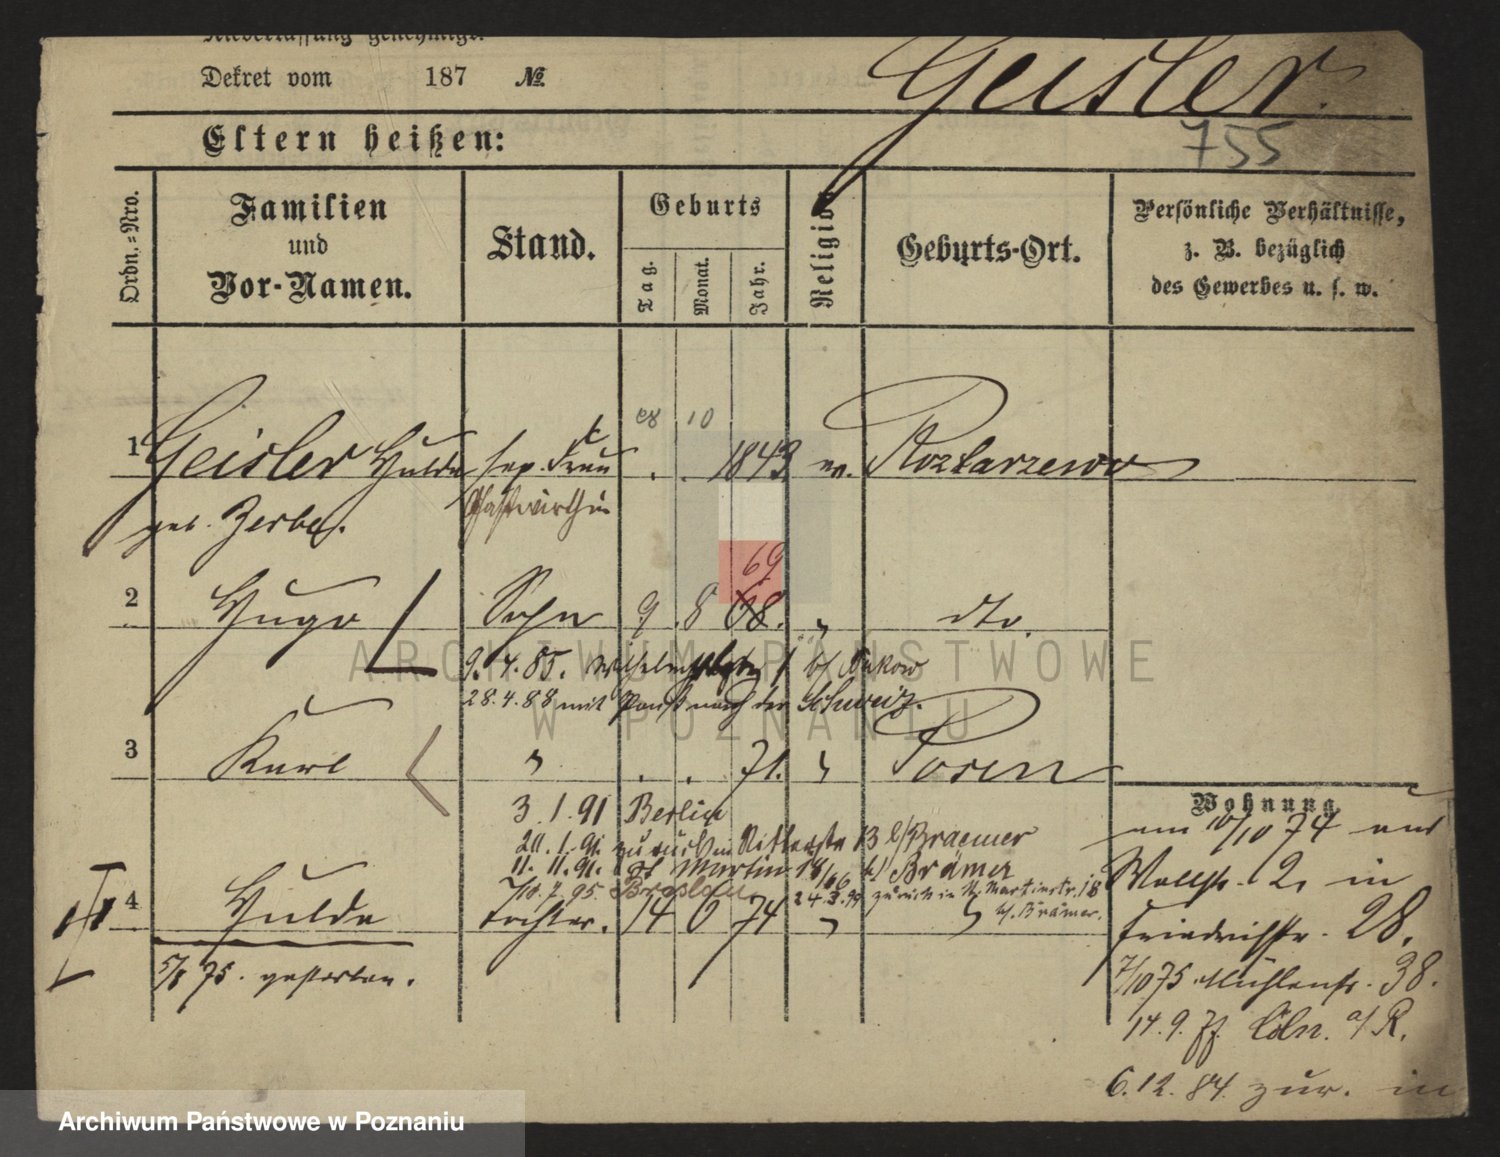 Niederlassung genehmigt.
Dekret vom 187 №
Geisler.
755
Eltern heißen:
Ordn.=Nro.
Familien
und
Vor-Namen.
Stand.
Geburts
Tag.
Monat.
Jahr.
Religion
Geburts-Ort.
Persönliche Verhältnisse,
z. B. bezüglich
des Gewerbes u. s. w.
10
1 Geisler Hulda sep. Frau . . 1843 ev. Roztarzewo
geb. Zerbe. Gastwirthin
69
2 Hugo Sohn 9. 8 68. " dto.
9. 4. 85. b/ Bukow
28.4.88 mit Paß nach der Schweiz.
3 Karl " . . 71. " Posen
3.1.91 Berlin
20.1.91. zurück Ritterstr 13 b/ Braemer
11. 11. 91. St Martin 18/ b/ Brämer
7/10.7.95. Breslau 24.2.99 zurück in St. Martinstr. 18
b/. Brämer.
4 Hulda Tochter. 14 6 74 " "
5/8 75. gestorben.
Wohnung.
am 10/10 74 aus
Wallstr. 2. in
Friedrichstr. 28.
7/10 75 Mühlenstr. 38.
14.9.77. Cöln. a/ R.
6.12.84. zur. in
ARCHIWUM PAŃSTWOWE
W POZNANIU
Archiwum Państwowe w Poznaniu